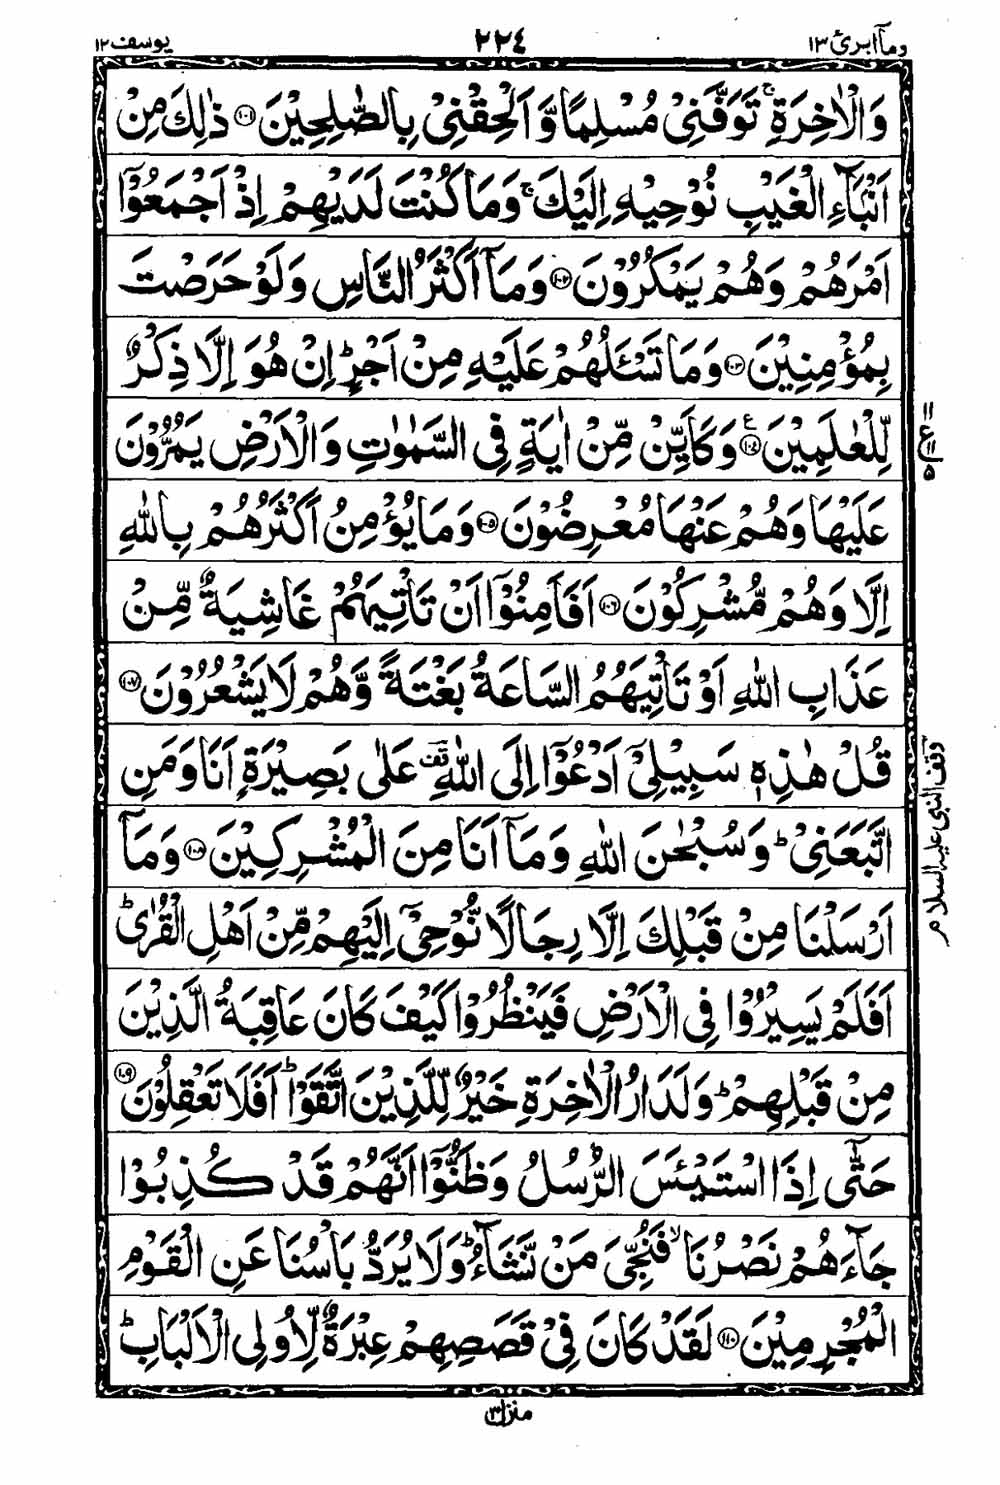 وما ابرئ ١٣ ٢٢٤ يوسف ١٢
وَالْاٰخِرَةِ ۚ تَوَفَّنِيْ مُسْلِمًا وَّاَلْحِقْنِيْ بِالصّٰلِحِيْنَ ﴿١٠١﴾ ذٰلِكَ مِنْ
اَنْۢبَآءِ الْغَيْبِ نُوْحِيْهِ اِلَيْكَ ۚ وَمَا كُنْتَ لَدَيْهِمْ اِذْ اَجْمَعُوْۤا
اَمْرَهُمْ وَهُمْ يَمْكُرُوْنَ ﴿١٠٢﴾ وَمَاۤ اَكْثَرُ النَّاسِ وَلَوْ حَرَصْتَ
بِمُؤْمِنِيْنَ ﴿١٠٣﴾ وَمَا تَسْـَٔلُهُمْ عَلَيْهِ مِنْ اَجْرٍ ؕ اِنْ هُوَ اِلَّا ذِكْرٌ
لِّلْعٰلَمِيْنَ ﴿١٠٤﴾ ع وَكَاَيِّنْ مِّنْ اٰيَةٍ فِي السَّمٰوٰتِ وَالْاَرْضِ يَمُرُّوْنَ
١١ ع ١١ ٥
عَلَيْهَا وَهُمْ عَنْهَا مُعْرِضُوْنَ ﴿١٠٥﴾ وَمَا يُؤْمِنُ اَكْثَرُهُمْ بِاللّٰهِ
اِلَّا وَهُمْ مُّشْرِكُوْنَ ﴿١٠٦﴾ اَفَاَمِنُوْۤا اَنْ تَاْتِيَهُمْ غَاشِيَةٌ مِّنْ
عَذَابِ اللّٰهِ اَوْ تَاْتِيَهُمُ السَّاعَةُ بَغْتَةً وَّهُمْ لَا يَشْعُرُوْنَ ﴿١٠٧﴾
قُلْ هٰذِهٖ سَبِيْلِيْۤ اَدْعُوْۤا اِلَى اللّٰهِ ؔقف عَلٰى بَصِيْرَةٍ اَنَا وَمَنِ
وقف النبي عليه السلام
اتَّبَعَنِيْ ؕ وَسُبْحٰنَ اللّٰهِ وَمَاۤ اَنَا مِنَ الْمُشْرِكِيْنَ ﴿١٠٨﴾ وَمَاۤ
اَرْسَلْنَا مِنْ قَبْلِكَ اِلَّا رِجَالًا نُّوْحِيْۤ اِلَيْهِمْ مِّنْ اَهْلِ الْقُرٰى ؕ
اَفَلَمْ يَسِيْرُوْا فِي الْاَرْضِ فَيَنْظُرُوْا كَيْفَ كَانَ عَاقِبَةُ الَّذِيْنَ
مِنْ قَبْلِهِمْ ؕ وَلَدَارُ الْاٰخِرَةِ خَيْرٌ لِّلَّذِيْنَ اتَّقَوْا ؕ اَفَلَا تَعْقِلُوْنَ ﴿١٠٩﴾
حَتّٰۤى اِذَا اسْتَيْـَٔسَ الرُّسُلُ وَظَنُّوْۤا اَنَّهُمْ قَدْ كُذِبُوْا
جَآءَهُمْ نَصْرُنَا ۙ فَنُجِّيَ مَنْ نَّشَآءُ ؕ وَلَا يُرَدُّ بَاْسُنَا عَنِ الْقَوْمِ
الْمُجْرِمِيْنَ ﴿١١٠﴾ لَقَدْ كَانَ فِيْ قَصَصِهِمْ عِبْرَةٌ لِّاُولِي الْاَلْبَابِ ؕ
منزل ٣